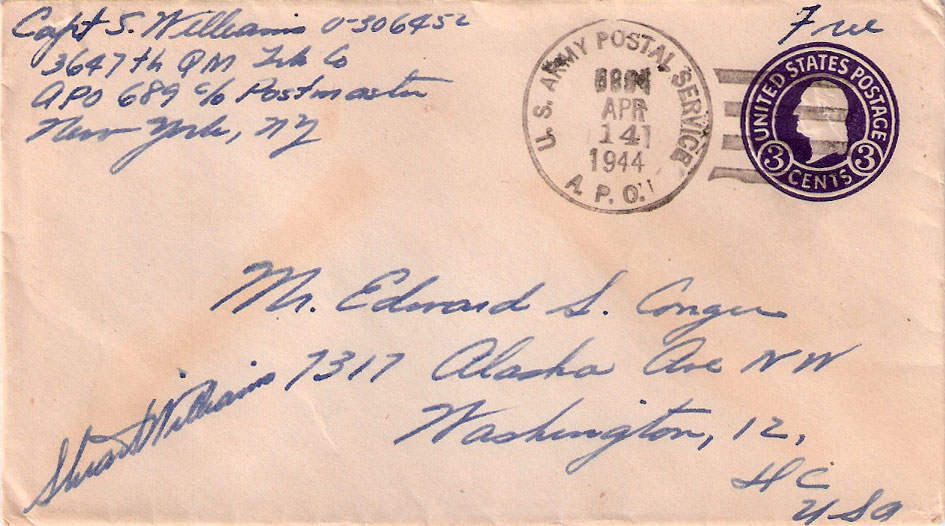 Capt S. Williams O-306452
3647th QM Trk Co
APO 689 c/o Postmaster
New York, NY
Free
U.S. ARMY POSTAL SERVICE
APR
14
1944
A.P.O.
UNITED STATES POSTAGE
3 CENTS 3
Mr. Edward S. Conger
7317 Alaska Ave NW
Washington, 12,
DC
USA
Stuart Williams